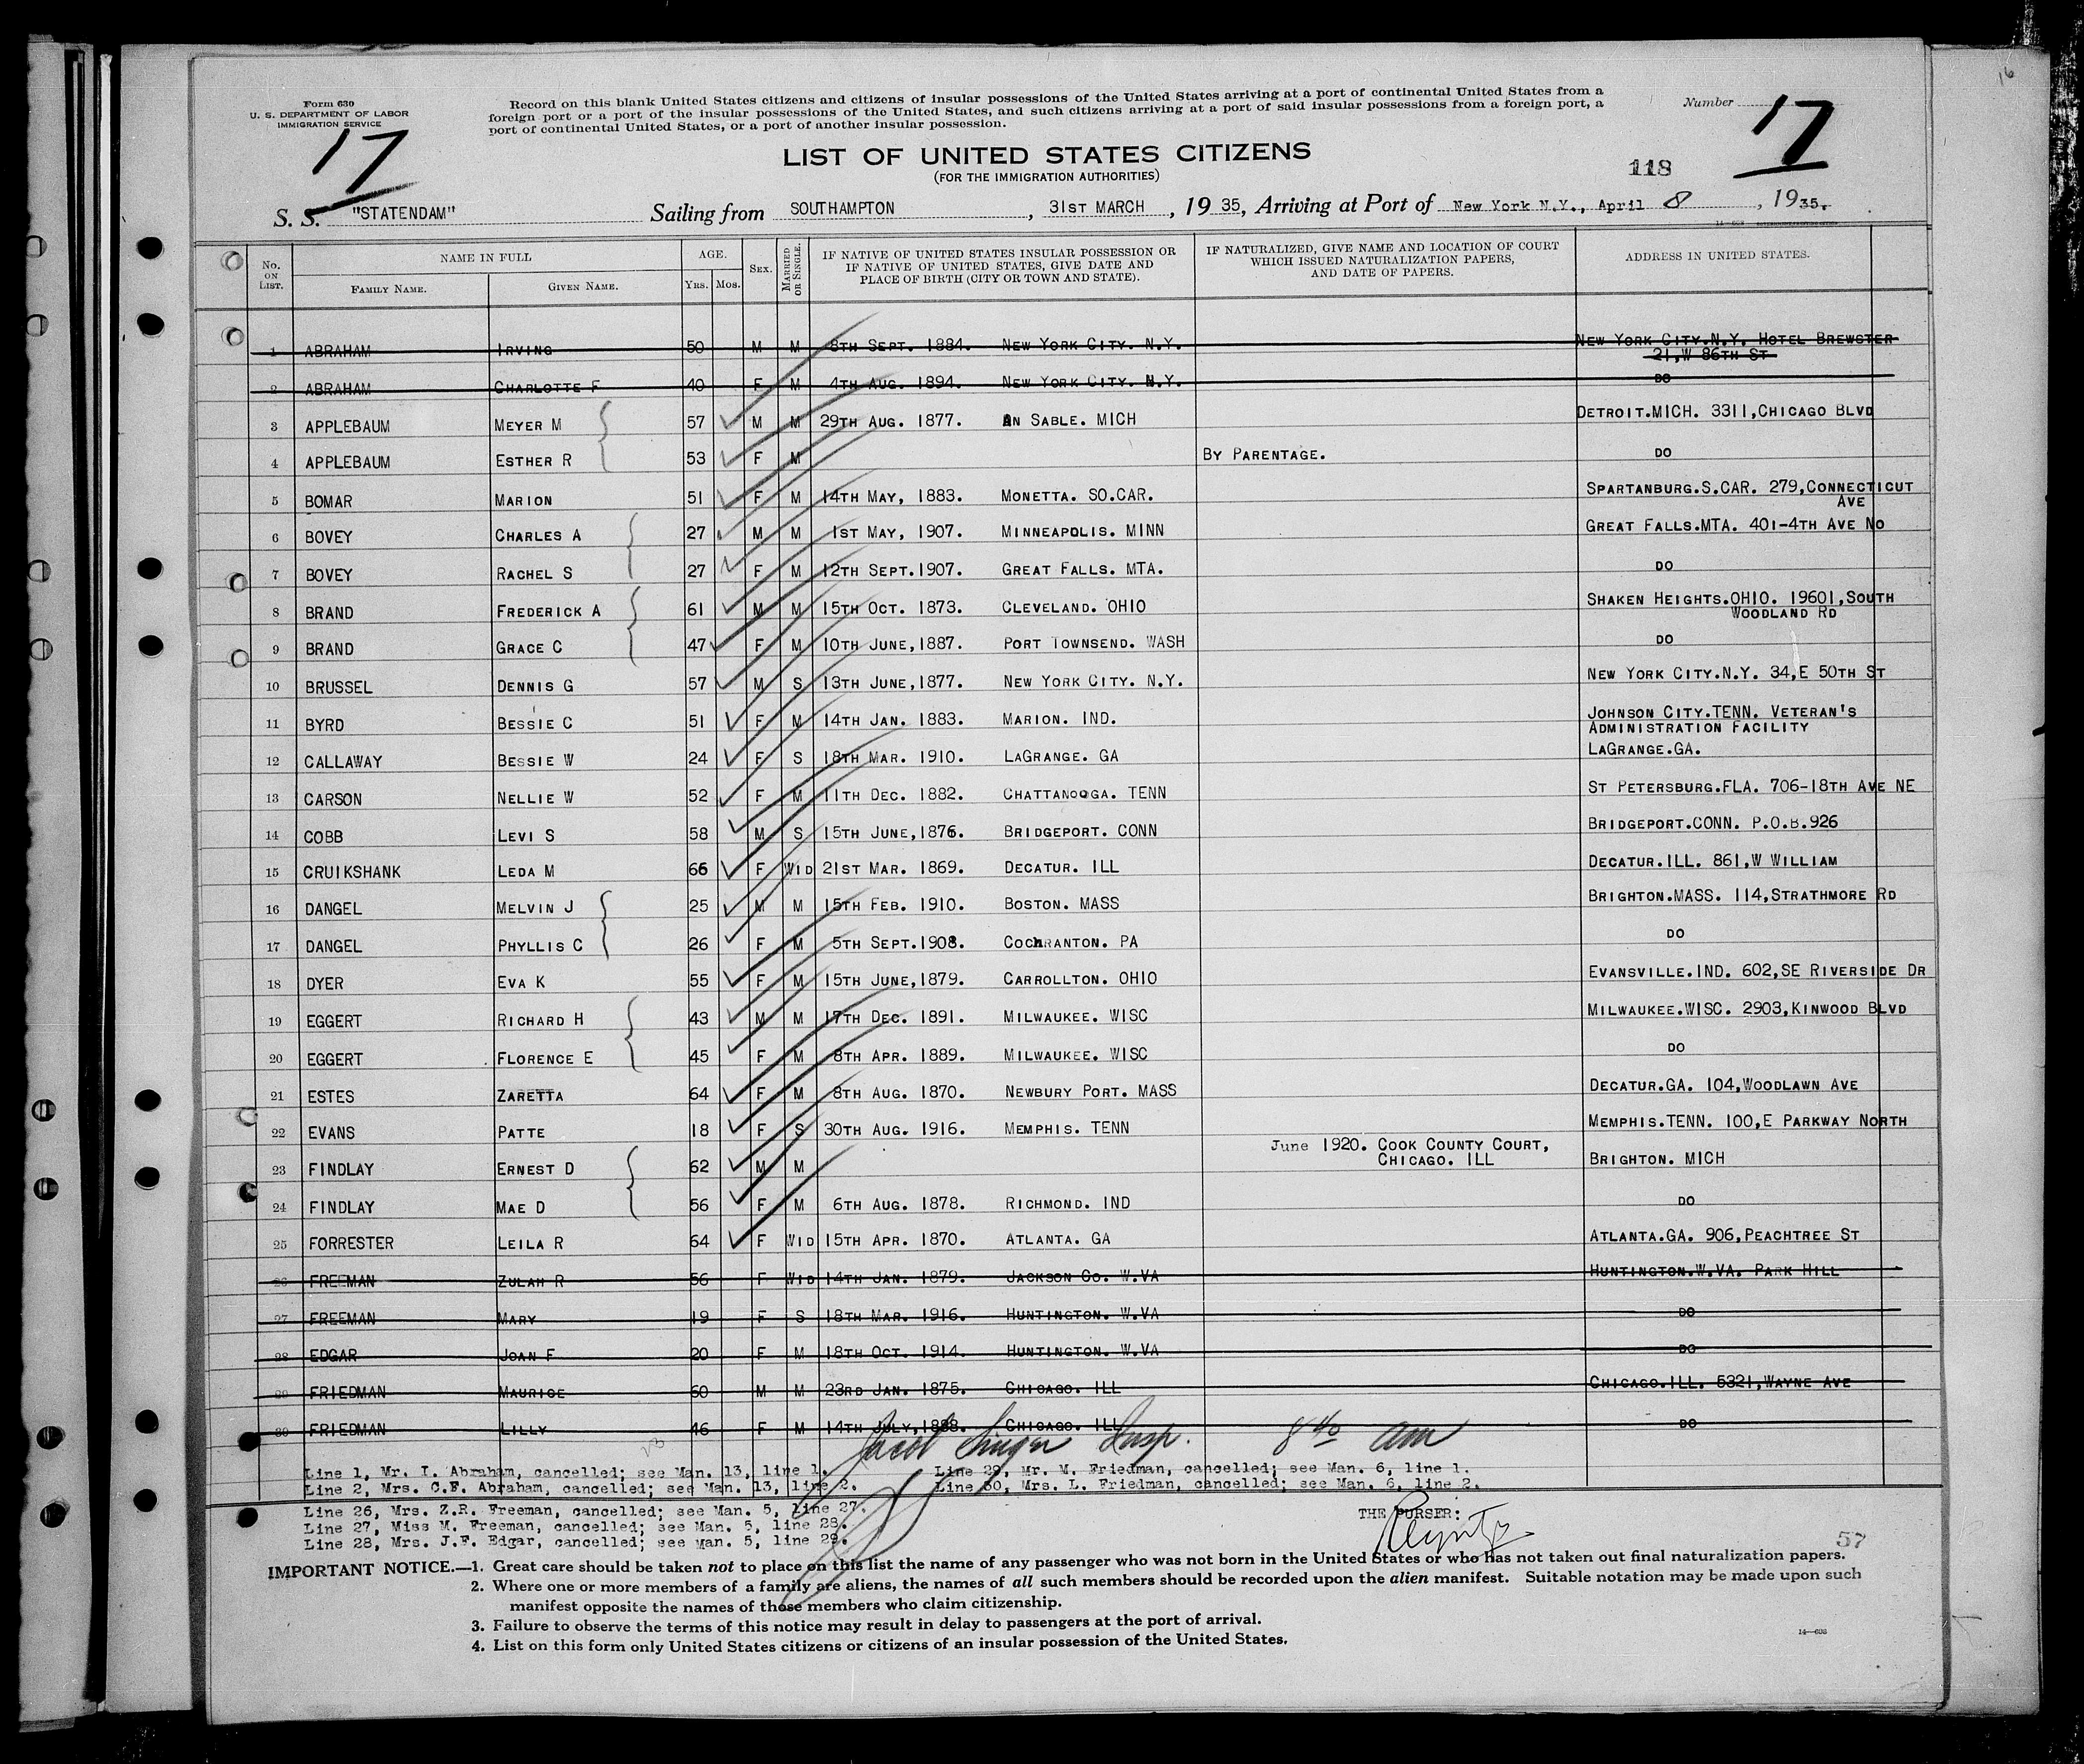 16
Form 630
U. S. DEPARTMENT OF LABOR
IMMIGRATION SERVICE
17
Record on this blank United States citizens and citizens of insular possessions of the United States arriving at a port of continental United States from a
foreign port or a port of the insular possessions of the United States, and such citizens arriving at a port of said insular possessions from a foreign port, a
port of continental United States, or a port of another insular possession.
Number 17
LIST OF UNITED STATES CITIZENS
(FOR THE IMMIGRATION AUTHORITIES)
118
S. S. "STATENDAM" Sailing from SOUTHAMPTON, 31ST MARCH, 19 35, Arriving at Port of New York N.Y., April 8, 19 35.
No. ON LIST. NAME IN FULL FAMILY NAME. GIVEN NAME. AGE. YRS. MOS. SEX. MARRIED OR SINGLE. IF NATIVE OF UNITED STATES INSULAR POSSESSION OR IF NATIVE OF UNITED STATES, GIVE DATE AND PLACE OF BIRTH (CITY OR TOWN AND STATE). IF NATURALIZED, GIVE NAME AND LOCATION OF COURT WHICH ISSUED NATURALIZATION PAPERS, AND DATE OF PAPERS. ADDRESS IN UNITED STATES.
1 ABRAHAM IRVING 50 M M 8TH SEPT. 1884. NEW YORK CITY. N.Y. NEW YORK CITY.N.Y. HOTEL BREWSTER
21,W 86TH ST
2 ABRAHAM CHARLOTTE F 40 F M 4TH AUG. 1894. NEW YORK CITY. N.Y. DO
3 APPLEBAUM MEYER M 57 M M 29TH AUG. 1877. AN SABLE. MICH DETROIT.MICH. 3311,CHICAGO BLVD
4 APPLEBAUM ESTHER R 53 F M BY PARENTAGE. DO
5 BOMAR MARION 51 F M 14TH MAY, 1883. MONETTA. SO.CAR. SPARTANBURG.S.CAR. 279,CONNECTICUT
AVE
6 BOVEY CHARLES A 27 M M 1ST MAY, 1907. MINNEAPOLIS. MINN GREAT FALLS.MTA. 401-4TH AVE NO
7 BOVEY RACHEL S 27 F M 12TH SEPT.1907. GREAT FALLS. MTA. DO
8 BRAND FREDERICK A 61 M M 15TH OCT. 1873. CLEVELAND. OHIO SHAKEN HEIGHTS.OHIO. 19601,SOUTH
WOODLAND RD
9 BRAND GRACE C 47 F M 10TH JUNE,1887. PORT TOWNSEND. WASH DO
10 BRUSSEL DENNIS G 57 M S 13TH JUNE,1877. NEW YORK CITY. N.Y. NEW YORK CITY.N.Y. 34,E 50TH ST
11 BYRD BESSIE C 51 F M 14TH JAN. 1883. MARION. IND. JOHNSON CITY.TENN. VETERAN'S
ADMINISTRATION FACILITY
12 CALLAWAY BESSIE W 24 F S 18TH MAR. 1910. LAGRANGE. GA LAGRANGE.GA.
13 CARSON NELLIE W 52 F M 11TH DEC. 1882. CHATTANOOGA. TENN ST PETERSBURG.FLA. 706-18TH AVE NE
14 COBB LEVI S 58 M S 15TH JUNE,1876. BRIDGEPORT. CONN BRIDGEPORT.CONN. P.O.B.926
15 CRUIKSHANK LEDA M 66 F WID 21ST MAR. 1869. DECATUR. ILL DECATUR.ILL. 861,W WILLIAM
16 DANGEL MELVIN J 25 M M 15TH FEB. 1910. BOSTON. MASS BRIGHTON.MASS. 114,STRATHMORE RD
17 DANGEL PHYLLIS C 26 F M 5TH SEPT.1908. COCHRANTON. PA DO
18 DYER EVA K 55 F M 15TH JUNE,1879. CARROLLTON. OHIO EVANSVILLE.IND. 602,SE RIVERSIDE DR
19 EGGERT RICHARD H 43 M M 17TH DEC. 1891. MILWAUKEE. WISC MILWAUKEE.WISC. 2903,KINWOOD BLVD
20 EGGERT FLORENCE E 45 F M 8TH APR. 1889. MILWAUKEE. WISC DO
21 ESTES ZARETTA 64 F M 8TH AUG. 1870. NEWBURY PORT. MASS DECATUR.GA. 104,WOODLAWN AVE
22 EVANS PATTE 18 F S 30TH AUG. 1916. MEMPHIS. TENN MEMPHIS.TENN. 100,E PARKWAY NORTH
23 FINDLAY ERNEST D 62 M M June 1920. COOK COUNTY COURT, CHICAGO. ILL BRIGHTON. MICH
24 FINDLAY MAE D 56 F M 6TH AUG. 1878. RICHMOND. IND DO
25 FORRESTER LEILA R 64 F WID 15TH APR. 1870. ATLANTA. GA ATLANTA.GA. 906,PEACHTREE ST
26 FREEMAN ZULAH R 56 F WID 14TH JAN. 1879. JACKSON CO. W.VA HUNTINGTON.W.VA. PARK HILL
27 FREEMAN MARY 19 F S 18TH MAR. 1916. HUNTINGTON. W.VA DO
28 EDGAR JOAN F 20 F M 18TH OCT. 1914. HUNTINGTON. W.VA DO
29 FRIEDMAN MAURICE 60 M M 23RD JAN. 1875. CHICAGO. ILL CHICAGO.ILL. 5321,WAYNE AVE
30 FRIEDMAN LILLY 46 F M 14TH JULY,1888. CHICAGO. ILL DO
Jacob Singer Insp. 8 40 am
Line 1, Mr. I. Abraham, cancelled; see Man. 13, line 1. Line 29, Mr. M. Friedman, cancelled; see Man. 6, line 1.
Line 2, Mrs. C.F. Abraham, cancelled; see Man. 13, line 2. Line 30, Mrs. L. Friedman, cancelled; see Man. 6, line 2.
Line 26, Mrs. Z.R. Freeman, cancelled; see Man. 5, line 27.
Line 27, Miss M. Freeman, cancelled; see Man. 5, line 28.
Line 28, Mrs. J.F. Edgar, cancelled; see Man. 5, line 29.
THE PURSER:
57
IMPORTANT NOTICE.—1. Great care should be taken not to place on this list the name of any passenger who was not born in the United States or who has not taken out final naturalization papers.
2. Where one or more members of a family are aliens, the names of all such members should be recorded upon the alien manifest. Suitable notation may be made upon such
manifest opposite the names of those members who claim citizenship.
3. Failure to observe the terms of this notice may result in delay to passengers at the port of arrival.
4. List on this form only United States citizens or citizens of an insular possession of the United States.